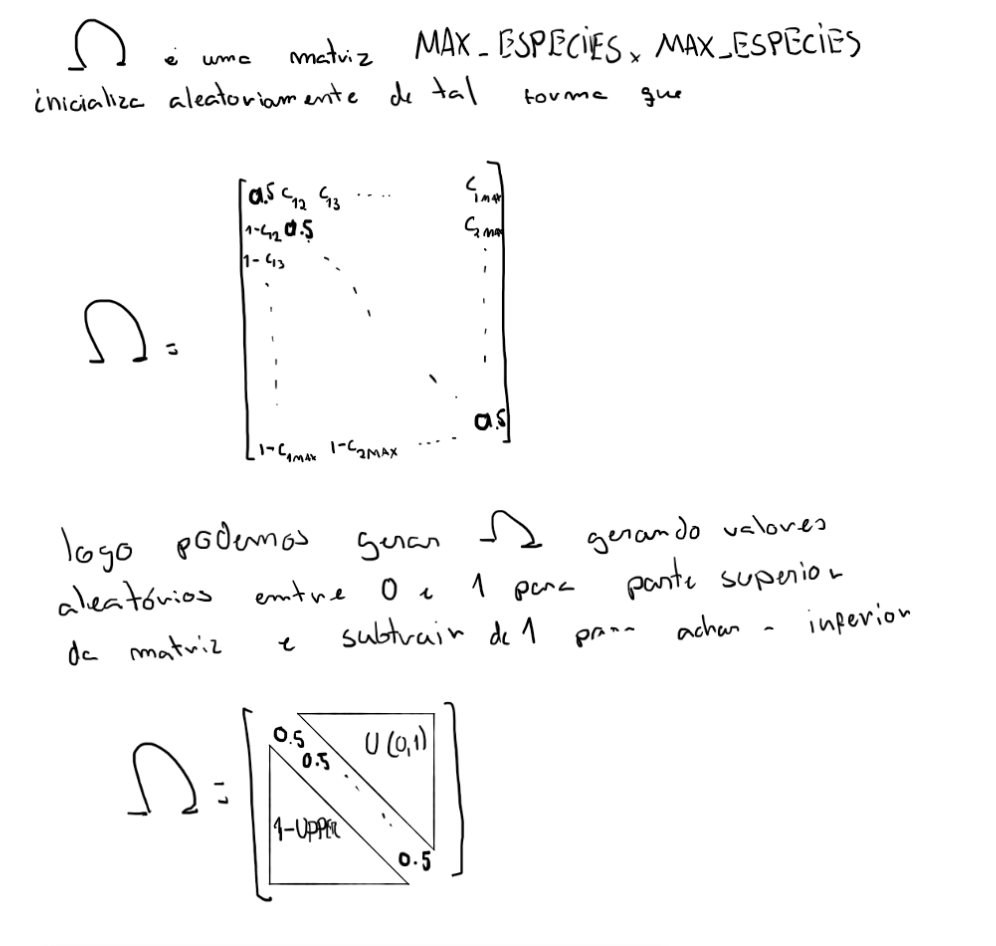 Ω é uma matriz MAX_ESPECIES x MAX_ESPECIES
inicializa aleatoriamente de tal forma que
0.5 c12 c13 ..... c1MAX
1-c12 0.5 c2MAX
1-c13
Ω =
0.5
1-c1MAX 1-c2MAX .....
logo podemos gerar Ω gerando valores
aleatórios entre 0 e 1 para parte superior
da matriz e subtrair de 1 para achar a inferior
0.5 U(0,1)
0.5
Ω =
1-UPPER
0.5